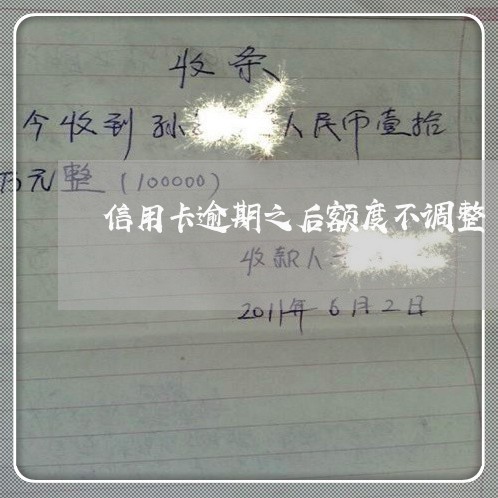 收条
今收到孙 人民币壹拾
万元整(100000)
信用卡逾期之后额度不调整
收款人
2011年6月2日